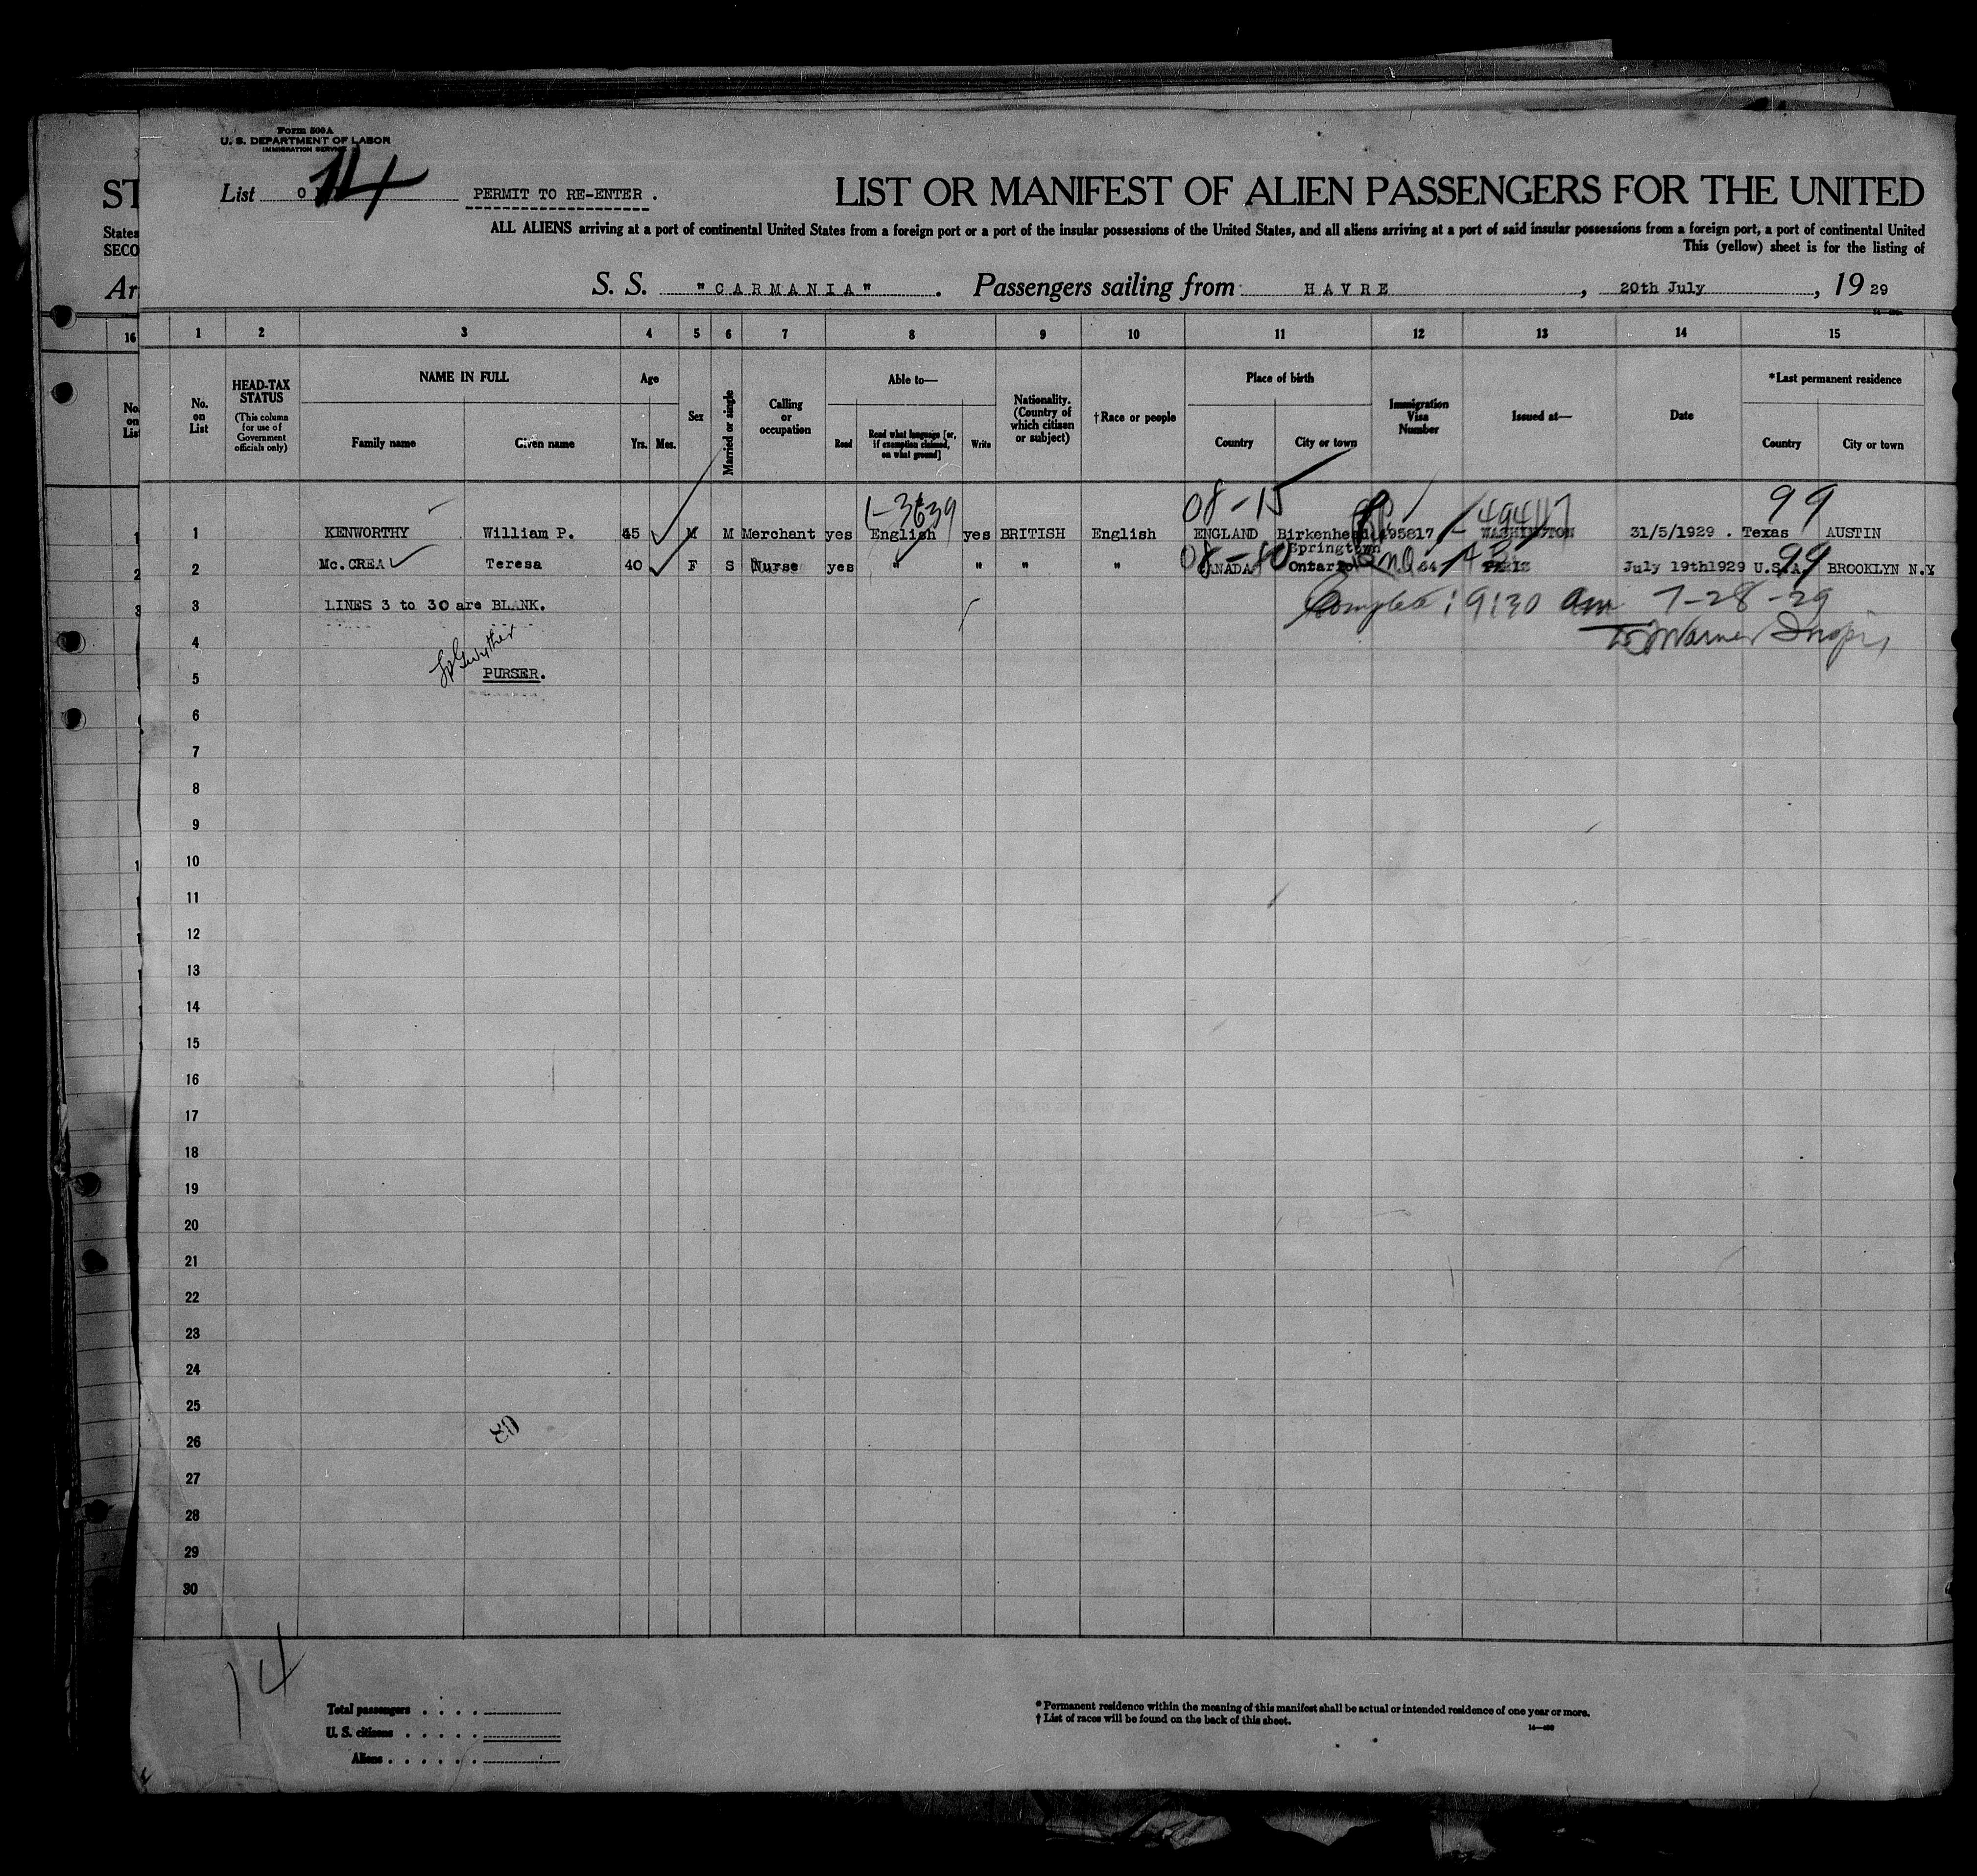 Form 500A
U. S. DEPARTMENT OF LABOR
IMMIGRATION SERVICE
List 14 PERMIT TO RE-ENTER .
LIST OR MANIFEST OF ALIEN PASSENGERS FOR THE UNITED
ST
ALL ALIENS arriving at a port of continental United States from a foreign port or a port of the insular possessions of the United States, and all aliens arriving at a port of said insular possessions from a foreign port, a port of continental United
States
This (yellow) sheet is for the listing of
SECO
Ar
S. S. "CARMANIA" . Passengers sailing from HAVRE , 20th July , 19 29
16 1 2 3 4 5 6 7 8 9 10 11 12 13 14 15
No. on List
HEAD-TAX STATUS
(This column for use of Government officials only)
NAME IN FULL
Family name
Given name
Age
Yrs. Mos.
Sex
Married or single
Calling or occupation
Able to—
Read
Read what language [or, if exemption claimed, on what ground]
Write
Nationality. (Country of which citizen or subject)
†Race or people
Place of birth
Country
City or town
Immigration Visa Number
Issued at—
Date
*Last permanent residence
Country
City or town
08-15 494117 99
1 KENWORTHY William P. 45 M M Merchant yes English yes BRITISH English ENGLAND Birkenhead 495817 WASHINGTON 31/5/1929 . Texas AUSTIN
Springtown
2 Mc.CREA Teresa 40 F S Nurse yes " " " " CANADA Ontario 64 PARIS July 19th1929 U.S.A. 99 BROOKLYN N.Y
3 LINES 3 to 30 are BLANK. 9:30 am 7-28-29
4 Warner
5 PURSER.
6
7
8
9
10
11
12
13
14
15
16
17
18
19
20
21
22
23
24
25
26
27
28
29
30
14
Total passengers
U. S. citizens
Aliens
* Permanent residence within the meaning of this manifest shall be actual or intended residence of one year or more.
† List of races will be found on the back of this sheet.